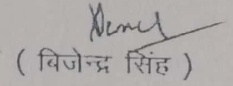 ( विजेन्द्र सिंह )